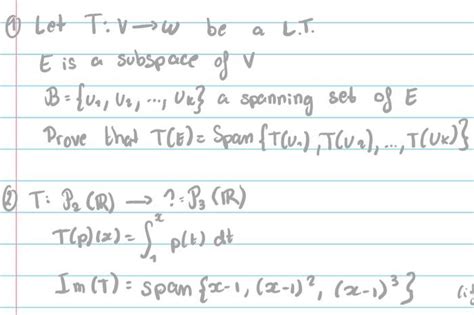 ① Let T: V → W be a L.T.
E is a subspace of V
B = {u₁, u₂, ..., uₖ} a spanning set of E
Prove that T(E) = Span {T(u₁), T(u₂), ..., T(uₖ)}
② T: P₂(ℝ) → ? = P₃(ℝ)
T(p)(x) = ∫₁ˣ p(t) dt
Im(T) = span {x-1, (x-1)², (x-1)³}